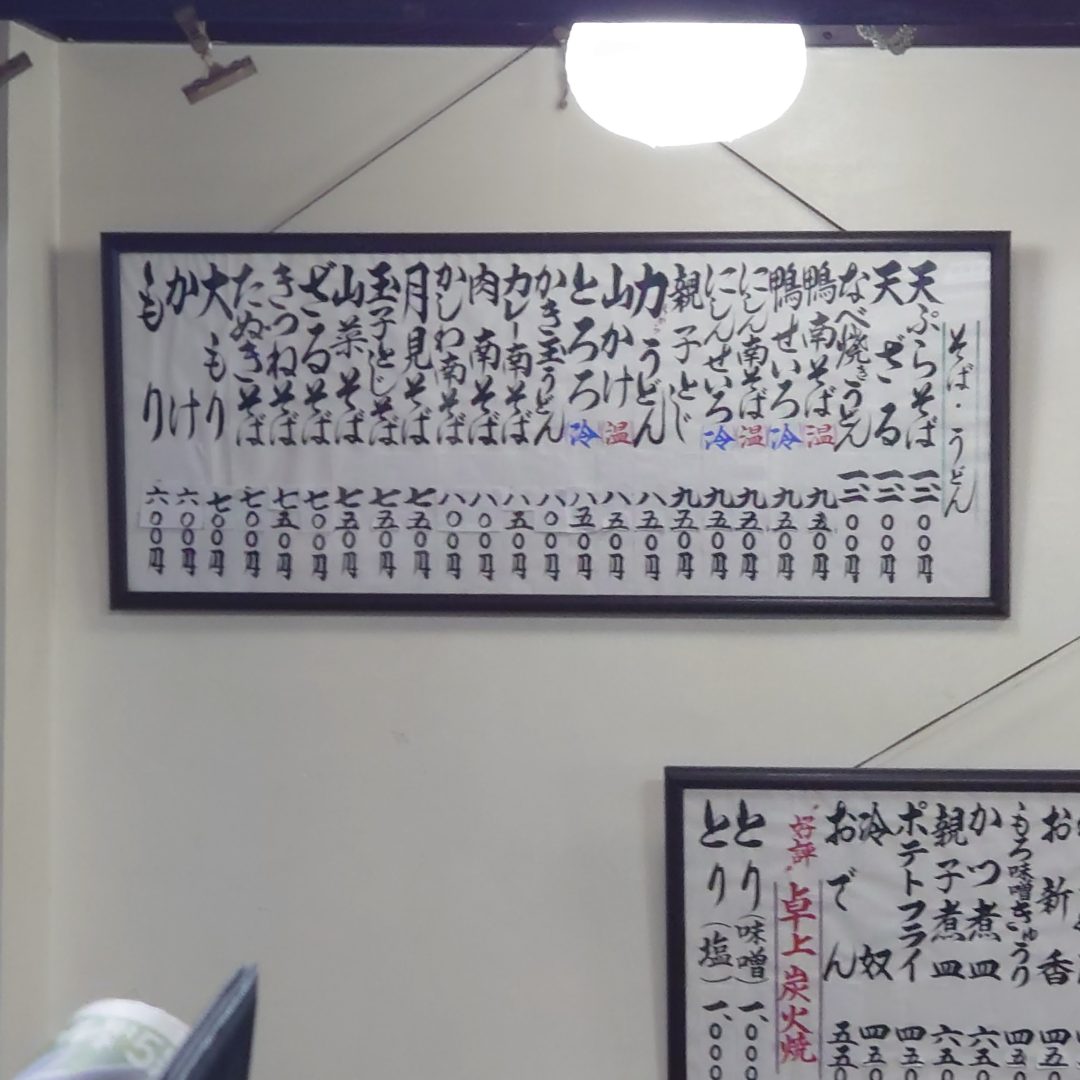 そば・うどん
天ぷらそば
天ざる
なべ焼きうどん
鴨南そば 温 九五〇円
鴨せいろ 冷 九五〇円
にしん南そば 温 九五〇円
にしんせいろ 冷 九五〇円
親子とじ 九五〇円
力うどん 八五〇円
山かけ 温 八五〇円
とろろ 冷 八五〇円
かき玉うどん 八〇〇円
カレー南そば 八五〇円
肉南そば 八〇〇円
かしわ南そば 八〇〇円
月見そば 七五〇円
玉子とじそば 七五〇円
山菜そば 七五〇円
ざるそば 七〇〇円
きつねそば 七五〇円
たぬきそば 七〇〇円
大もり 七〇〇円
かけ 六〇〇円
もり 六〇〇円
お新香 四五〇
もろ味噌きゅうり 四五〇
かつ煮皿 六五〇
親子煮皿 六五〇
ポテトフライ 四五〇
冷奴 四五〇
おでん 五五〇
好評 卓上炭火焼
とり(味噌) 一、〇〇〇
とり(塩) 一、〇〇〇